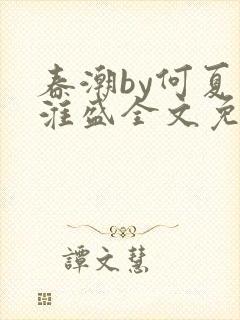 春潮by何夏
淮盛全文免
譚文慧